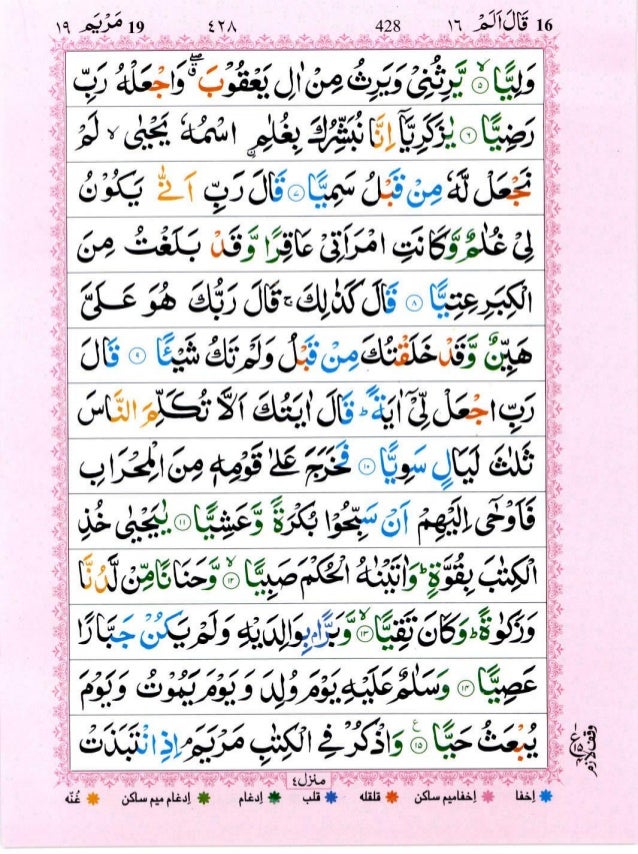 16 قَالَ اَلَمْ ١٦ 428 ٤٢٨ 19 مَرْيَم ١٩
وَلِيًّا ۙ﴿۵﴾ يَّرِثُنِىْ وَيَرِثُ مِنْ اٰلِ يَعْقُوْبَ ۖۗ وَاجْعَلْهُ رَبِّ
رَضِيًّا ﴿۶﴾ يٰزَكَرِيَّاۤ اِنَّا نُبَشِّرُكَ بِغُلٰمِ ۨ اسْمُهٗ يَحْيٰى ۙ لَمْ
نَجْعَلْ لَّهٗ مِنْ قَبْلُ سَمِيًّا ﴿۷﴾ قَالَ رَبِّ اَنّٰى يَكُوْنُ
لِىْ غُلٰمٌ وَّكَانَتِ امْرَاَتِىْ عَاقِرًا وَّقَدْ بَلَغْتُ مِنَ
الْكِبَرِ عِتِيًّا ﴿۸﴾ قَالَ كَذٰلِكَ ۚ قَالَ رَبُّكَ هُوَ عَلَىَّ
هَيِّنٌ وَّقَدْ خَلَقْتُكَ مِنْ قَبْلُ وَلَمْ تَكُ شَيْـًٔا ﴿۹﴾ قَالَ
رَبِّ اجْعَلْ لِّىْۤ اٰيَةً ؕ قَالَ اٰيَتُكَ اَلَّا تُكَلِّمَ النَّاسَ
ثَلٰثَ لَيَالٍ سَوِيًّا ﴿۱۰﴾ فَخَرَجَ عَلٰى قَوْمِهٖ مِنَ الْمِحْرَابِ
فَاَوْحٰٓى اِلَيْهِمْ اَنْ سَبِّحُوْا بُكْرَةً وَّعَشِيًّا ﴿۱۱﴾ يٰيَحْيٰى خُذِ
الْكِتٰبَ بِقُوَّةٍ ؕ وَاٰتَيْنٰهُ الْحُكْمَ صَبِيًّا ۙ﴿۱۲﴾ وَّحَنَانًا مِّنْ لَّدُنَّا
وَزَكٰوةً ؕ وَكَانَ تَقِيًّا ۙ﴿۱۳﴾ وَّبَرًّۢا بِوَالِدَيْهِ وَلَمْ يَكُنْ جَبَّارًا
عَصِيًّا ﴿۱۴﴾ وَسَلٰمٌ عَلَيْهِ يَوْمَ وُلِدَ وَيَوْمَ يَمُوْتُ وَيَوْمَ
يُبْعَثُ حَيًّا ﴿۱۵﴾ وَاذْكُرْ فِى الْكِتٰبِ مَرْيَمَ ۘ اِذِ انْتَبَذَتْ
وقف لازم
منزل ٤
إخفا إخفامیم ساکن قلقله قلب إدغام إدغام میم ساکن غنّه